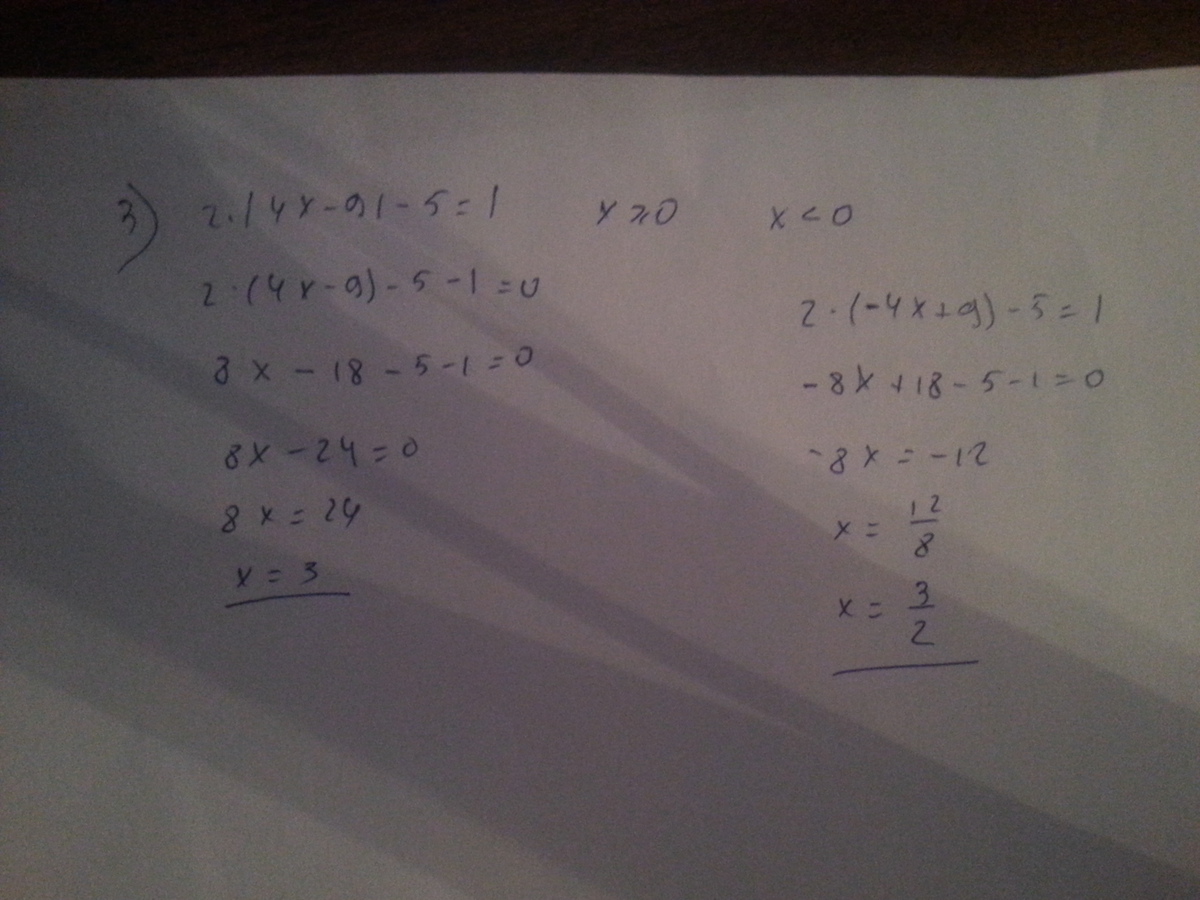 3) 2·|4x-9|-5=1 x⩾0 x<0
2·(4x-9)-5-1=0
8x-18-5-1=0
8x-24=0
8x=24
x=3
2·(-4x+9)-5=1
-8x+18-5-1=0
-8x=-12
x=12/8
x=3/2